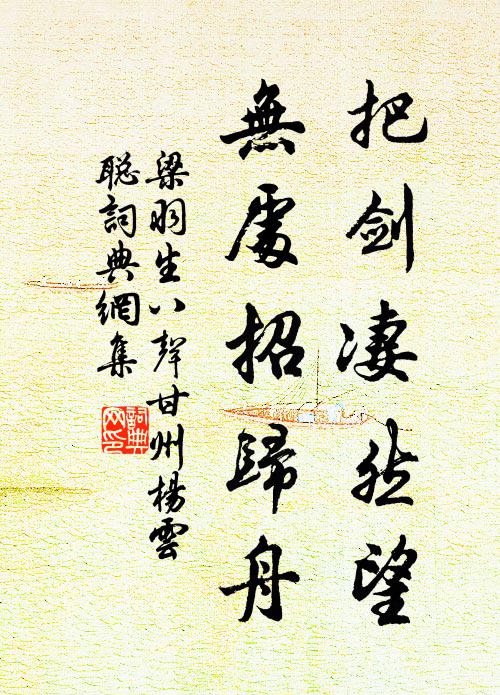 把剑凄然望
無處招歸舟
梁羽生八聲甘州楊雲
聪詞典網集
詞典
网印